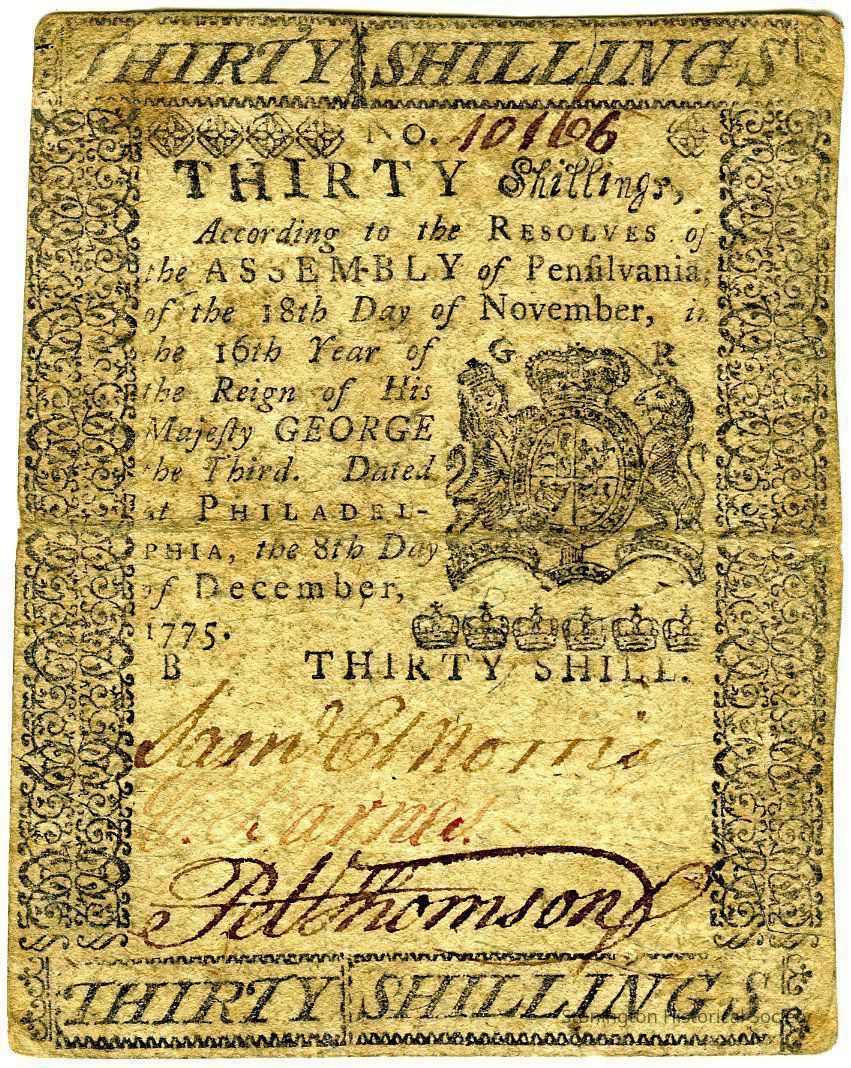 THIRTY SHILLINGS
No. 40166
THIRTY Shillings,
According to the RESOLVES of
the ASSEMBLY of Penſilvania,
of the 18th Day of November, in
the 16th Year of
the Reign of His
Majeſty GEORGE
the Third. Dated
at PHILADEL-
PHIA, the 8th Day
of December,
1775.
G R
B THIRTY SHILL.
Saml. C. Morris
Thomson
THIRTY SHILLINGS
Stonington Historical Society